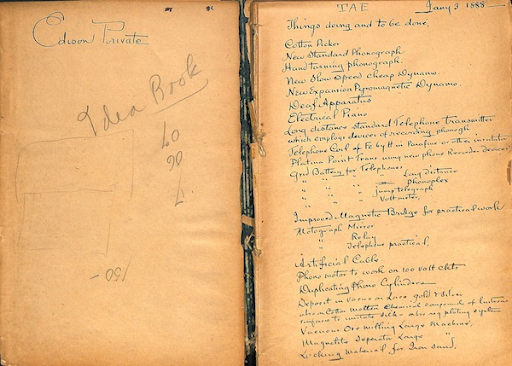 Edison Private
Idea Book
TAE Jany 3 1888
Things doing and to be done,
Cotton Picker
New Standard Phonograph
Hand turning phonograph.
New Slow Speed Cheap Dynamo.
New Expansion Pyromagnetic Dynamo.
Deaf Apparatus
Electrical Piano
Long distance standard Telephone transmitter
which employs devices of recording phonogh
Telephone Coil of Fe by tt in Parafine or other insulator
Platina Point Trans using new phono Recorder devices
Grid Battery for Telephones
" " " Long distance
" " " Phonoplex
" " " jump telegraph
" " " Voltmeter,
Improved Magnetic Bridge for practical work
Motograph Mirror
" Relay
" Telephone practical,
Artificial Cable
Phono motor to work on 100 volt ckts
Duplicating Phono Cylinders
Deposit in vacuo on lace gold & silver
also cotton molten chemical compounds of lustrous
surface to imitate silk - also reg plating system
Vacuous Ore milling Large Machine,
Magnetic Separator Large "
Locking material for Iron sand,